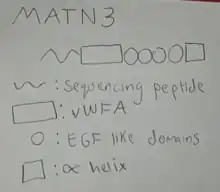 MATN3
: Sequencing peptide
: vWFA
: EGF like domains
: ∝ helix